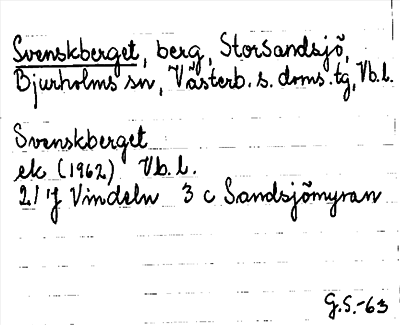 Svenskberget, berg, Storsandsjö,
Bjurholms sn, Västerb. s. doms. tg, Vb. l.
Svenskberget
ek (1962) Vb. l.
21 J Vindeln 3 c Sandsjömyran
G.S.-63